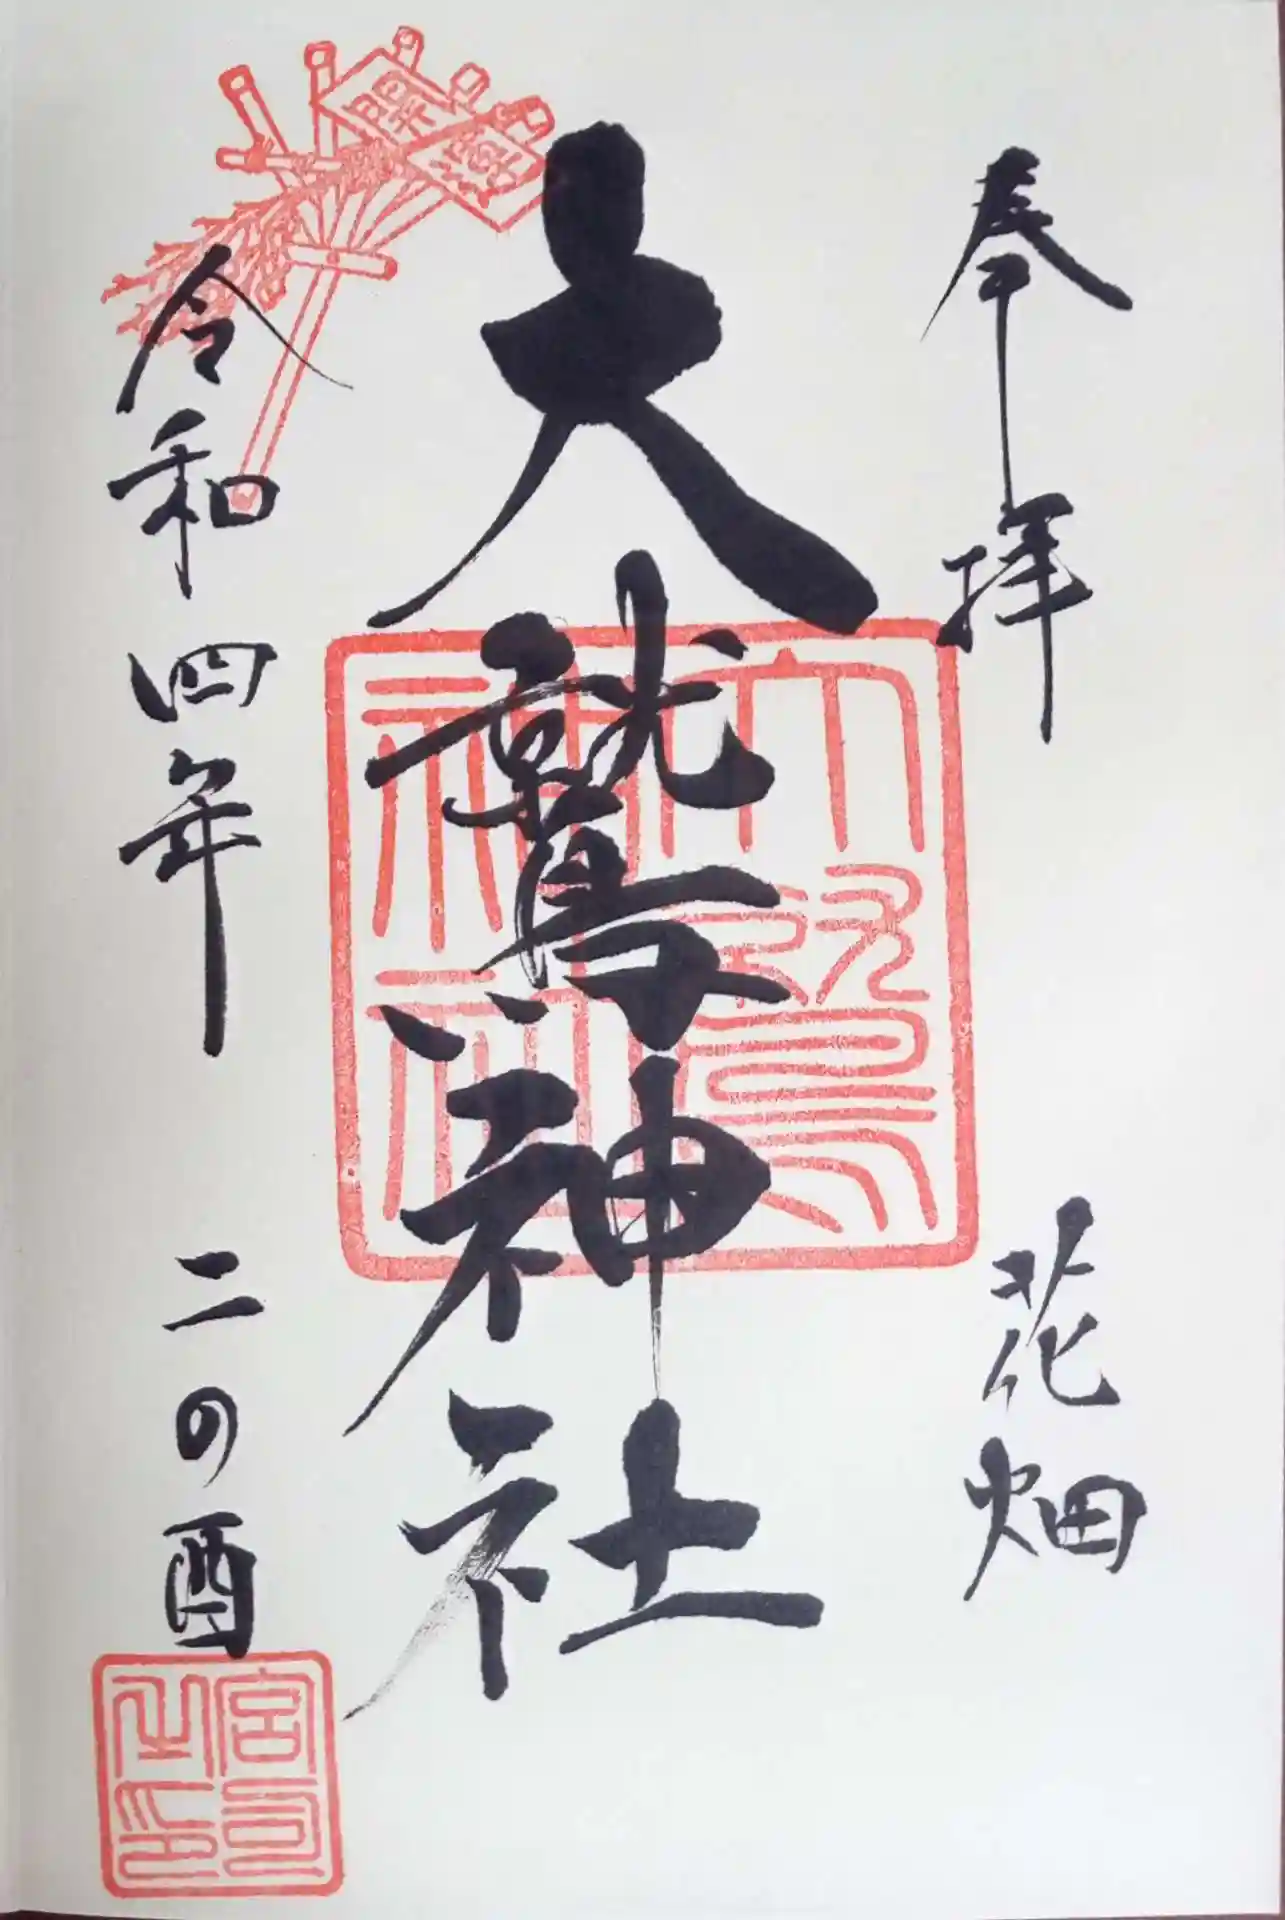 奉拝
花畑
大鷲神社
令和四年
二の酉
開運
大鷲神社
宮司之印